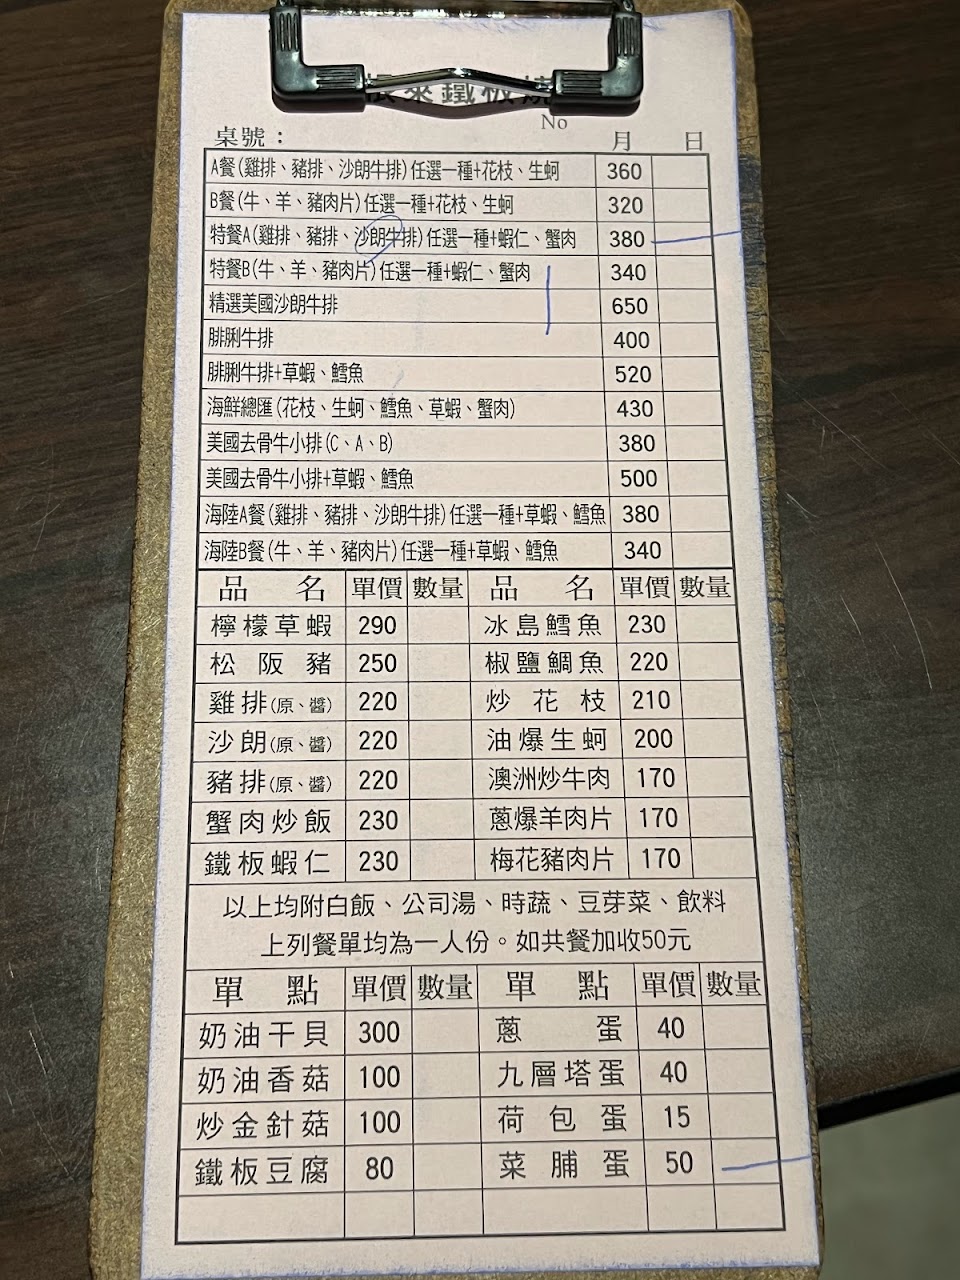 鐵板燒
No
桌號： 月 日
A餐(雞排、豬排、沙朗牛排)任選一種+花枝、生蚵 360
B餐(牛、羊、豬肉片)任選一種+花枝、生蚵 320
特餐A(雞排、豬排、沙朗牛排)任選一種+蝦仁、蟹肉 380
特餐B(牛、羊、豬肉片)任選一種+蝦仁、蟹肉 340
精選美國沙朗牛排 650
腓脷牛排 400
腓脷牛排+草蝦、鱈魚 520
海鮮總匯(花枝、生蚵、鱈魚、草蝦、蟹肉) 430
美國去骨牛小排(C、A、B) 380
美國去骨牛小排+草蝦、鱈魚 500
海陸A餐(雞排、豬排、沙朗牛排)任選一種+草蝦、鱈魚 380
海陸B餐(牛、羊、豬肉片)任選一種+草蝦、鱈魚 340
品名 單價 數量 品名 單價 數量
檸檬草蝦 290 冰島鱈魚 230
松阪豬 250 椒鹽鯛魚 220
雞排(原、醬) 220 炒花枝 210
沙朗(原、醬) 220 油爆生蚵 200
豬排(原、醬) 220 澳洲炒牛肉 170
蟹肉炒飯 230 蔥爆羊肉片 170
鐵板蝦仁 230 梅花豬肉片 170
以上均附白飯、公司湯、時蔬、豆芽菜、飲料
上列餐單均為一人份。如共餐加收50元
單點 單價 數量 單點 單價 數量
奶油干貝 300 蔥蛋 40
奶油香菇 100 九層塔蛋 40
炒金針菇 100 荷包蛋 15
鐵板豆腐 80 菜脯蛋 50